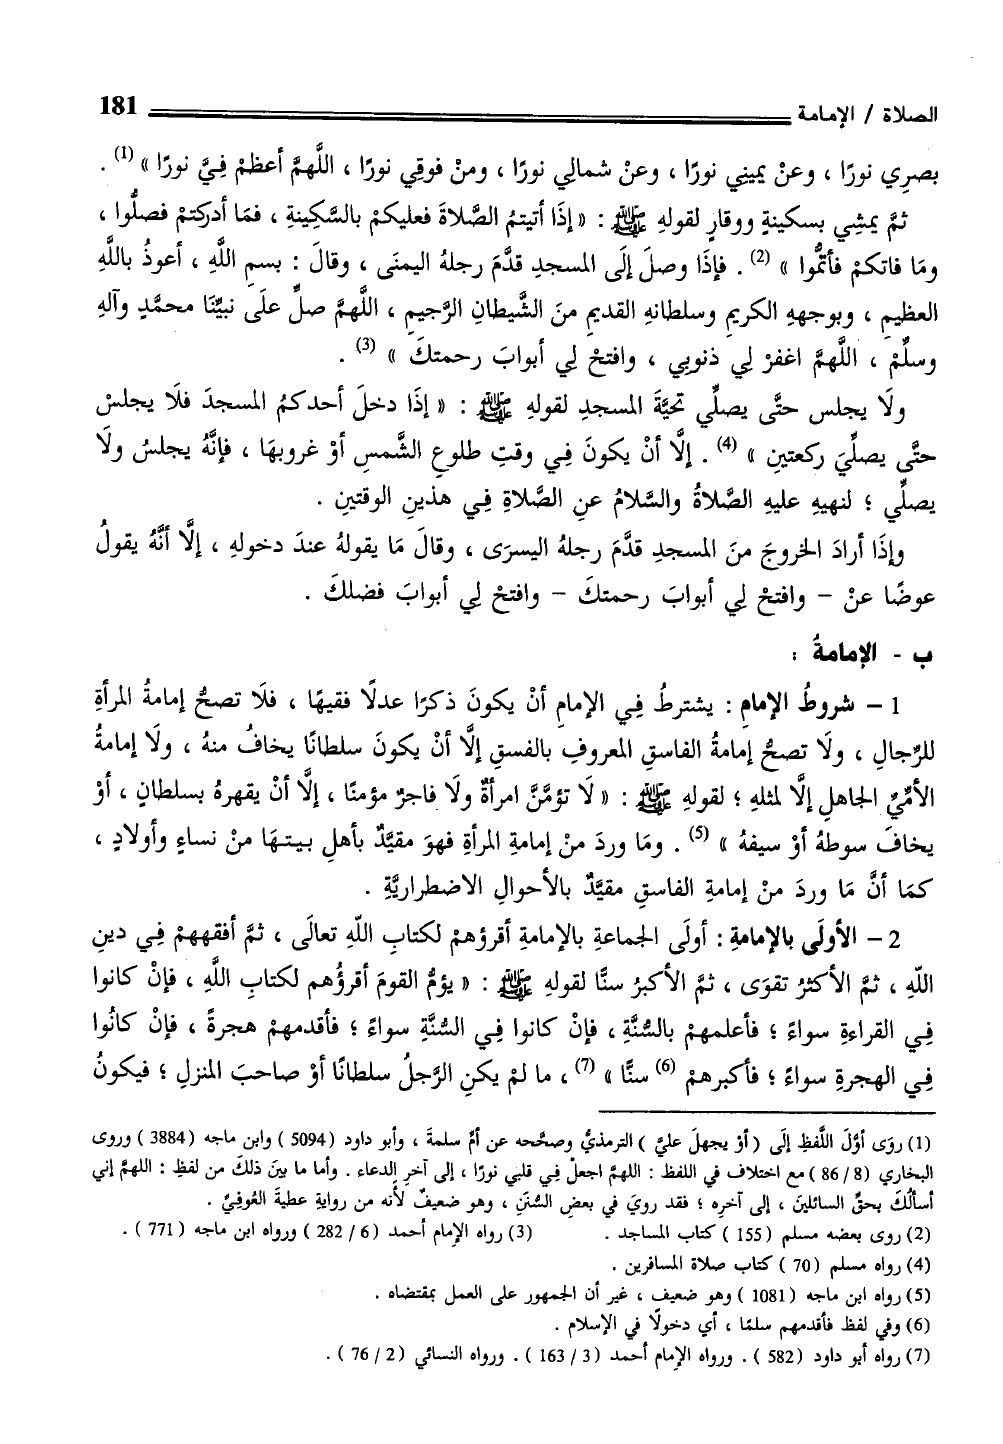 الصلاة / الإمامة 181
بصرِي نورًا ، وعنْ يمينِي نورًا ، وعنْ شمالِي نورًا ، ومنْ فوقِي نورًا ، اللَّهمَّ أعظمْ فِيَّ نورًا » (1) .
ثمَّ يمشِي بسكينةٍ ووقارٍ لقولهِ ﷺ : « إذَا أتيتمُ الصَّلاةَ فعليكمْ بالسَّكِينةِ ، فمَا أدركتمْ فصلُّوا ،
ومَا فاتكمْ فأتمُّوا » (2) . فإذَا وصلَ إلَى المسجدِ قدَّمَ رجلهُ اليمنَى ، وقالَ : بسمِ اللَّهِ ، أعوذُ باللَّهِ
العظيمِ ، وبوجههِ الكريمِ وسلطانهِ القديمِ منَ الشَّيطانِ الرَّجيمِ ، اللَّهمَّ صلِّ علَى نبيِّنَا محمَّدٍ وآلهِ
وسلِّمْ ، اللَّهمَّ اغفرْ لِي ذنوبِي ، وافتحْ لِي أبوابَ رحمتكَ » (3) .
ولَا يجلس حتَّى يصلِّي تحيَّةَ المسجدِ لقولهِ ﷺ : « إذَا دخلَ أحدكمُ المسجدَ فلَا يجلسْ
حتَّى يصلِّيَ ركعتينِ » (4) . إلَّا أنْ يكونَ فِي وقتِ طلوعِ الشَّمسِ أوْ غروبهَا ، فإنَّهُ يجلسُ ولَا
يصلِّي ؛ لنهيهِ عليهِ الصَّلاةُ والسَّلامُ عنِ الصَّلاةِ فِي هذينِ الوقتينِ .
وإذَا أرادَ الخروجَ منَ المسجدِ قدَّمَ رجلهُ اليسرَى ، وقالَ مَا يقولهُ عندَ دخولهِ ، إلَّا أنَّهُ يقولُ
عوضًا عنْ – وافتحْ لِي أبوابَ رحمتكَ – وافتحْ لِي أبوابَ فضلكَ .
ب - الإمامةُ :
1 – شروطُ الإمامِ : يشترطُ فِي الإمامِ أنْ يكونَ ذكرًا عدلًا فقيهًا ، فلَا تصحُّ إمامةُ المرأةِ
للرِّجالِ ، ولَا تصحُّ إمامةُ الفاسقِ المعروفِ بالفسقِ إلَّا أنْ يكونَ سلطانًا يخافُ منهُ ، ولَا إمامةُ
الأمِّيِّ الجاهلِ إلَّا لمثلهِ ؛ لقولهِ ﷺ : « لَا تؤمَّنَّ امرأةٌ ولَا فاجرٌ مؤمنًا ، إلَّا أنْ يقهرهُ بسلطانٍ ، أوْ
يخافَ سوطهُ أوْ سيفهُ » (5) . ومَا وردَ منْ إمامةِ المرأةِ فهوَ مقيَّدٌ بأهلِ بيتهَا منْ نساءٍ وأولادٍ ،
كمَا أنَّ مَا وردَ منْ إمامةِ الفاسقِ مقيَّدٌ بالأحوالِ الاضطراريَّةِ .
2 – الأولَى بالإمامةِ : أولَى الجماعةِ بالإمامةِ أقرؤهمْ لكتابِ اللَّهِ تعالَى ، ثمَّ أفقههمْ فِي دينِ
اللَّهِ ، ثمَّ الأكثرُ تقوَى ، ثمَّ الأكبرُ سنًّا لقولهِ ﷺ : « يؤمُّ القومَ أقرؤُهم لكتابِ اللَّهِ ، فإنْ كانوا
فِي القراءةِ سواءً ؛ فأعلمهمْ بالسُّنَّةِ ، فإنْ كانوا فِي السُّنَّةِ سواءً ؛ فأقدمهمْ هجرةً ، فإنْ كانُوا
فِي الهجرةِ سواءً ؛ فأكبرهمْ (6) سنًّا » (7) ، ما لمْ يكنِ الرَّجلُ سلطانًا أوْ صاحبَ المنزلِ ؛ فيكونُ
(1) روَى أوَّلَ اللَّفظِ إلَى ( أوْ يجهلَ عليَّ ) الترمذيُّ وصحَّحه عن أمِّ سلمةَ ، وأبو داود ( 5094 ) وابن ماجه ( 3884 ) وروى
البخاري ( 8 / 86 ) مع اختلاف في اللفظ : اللهمَّ اجعلْ في قلبي نورًا ، إلى آخرِ الدعاء . وأما ما بينَ ذلكَ من لفظِ : اللهمَّ إني
أسألُكَ بحقِّ السائلينَ ، إلى آخرِه ؛ فقد رويَ في بعضِ السُّننِ ، وهو ضعيفٌ لأنه من روايةِ عطيةَ العُوفِيِّ .
(2) روى بعضه مسلم ( 155 ) كتاب المساجد . (3) رواه الإمام أحمد ( 6 / 282 ) ورواه ابن ماجه ( 771 ) .
(4) رواه مسلم ( 70 ) كتاب صلاة المسافرين .
(5) رواه ابن ماجه ( 1081 ) وهو ضعيف ، غير أن الجمهور على العمل بمقتضاه .
(6) وفي لفظ فأقدمهم سلمًا ، أي دخولًا في الإسلام .
(7) رواه أبو داود ( 582 ) . ورواه الإمام أحمد ( 3 / 163 ) . ورواه النسائي ( 2 / 76 ) .